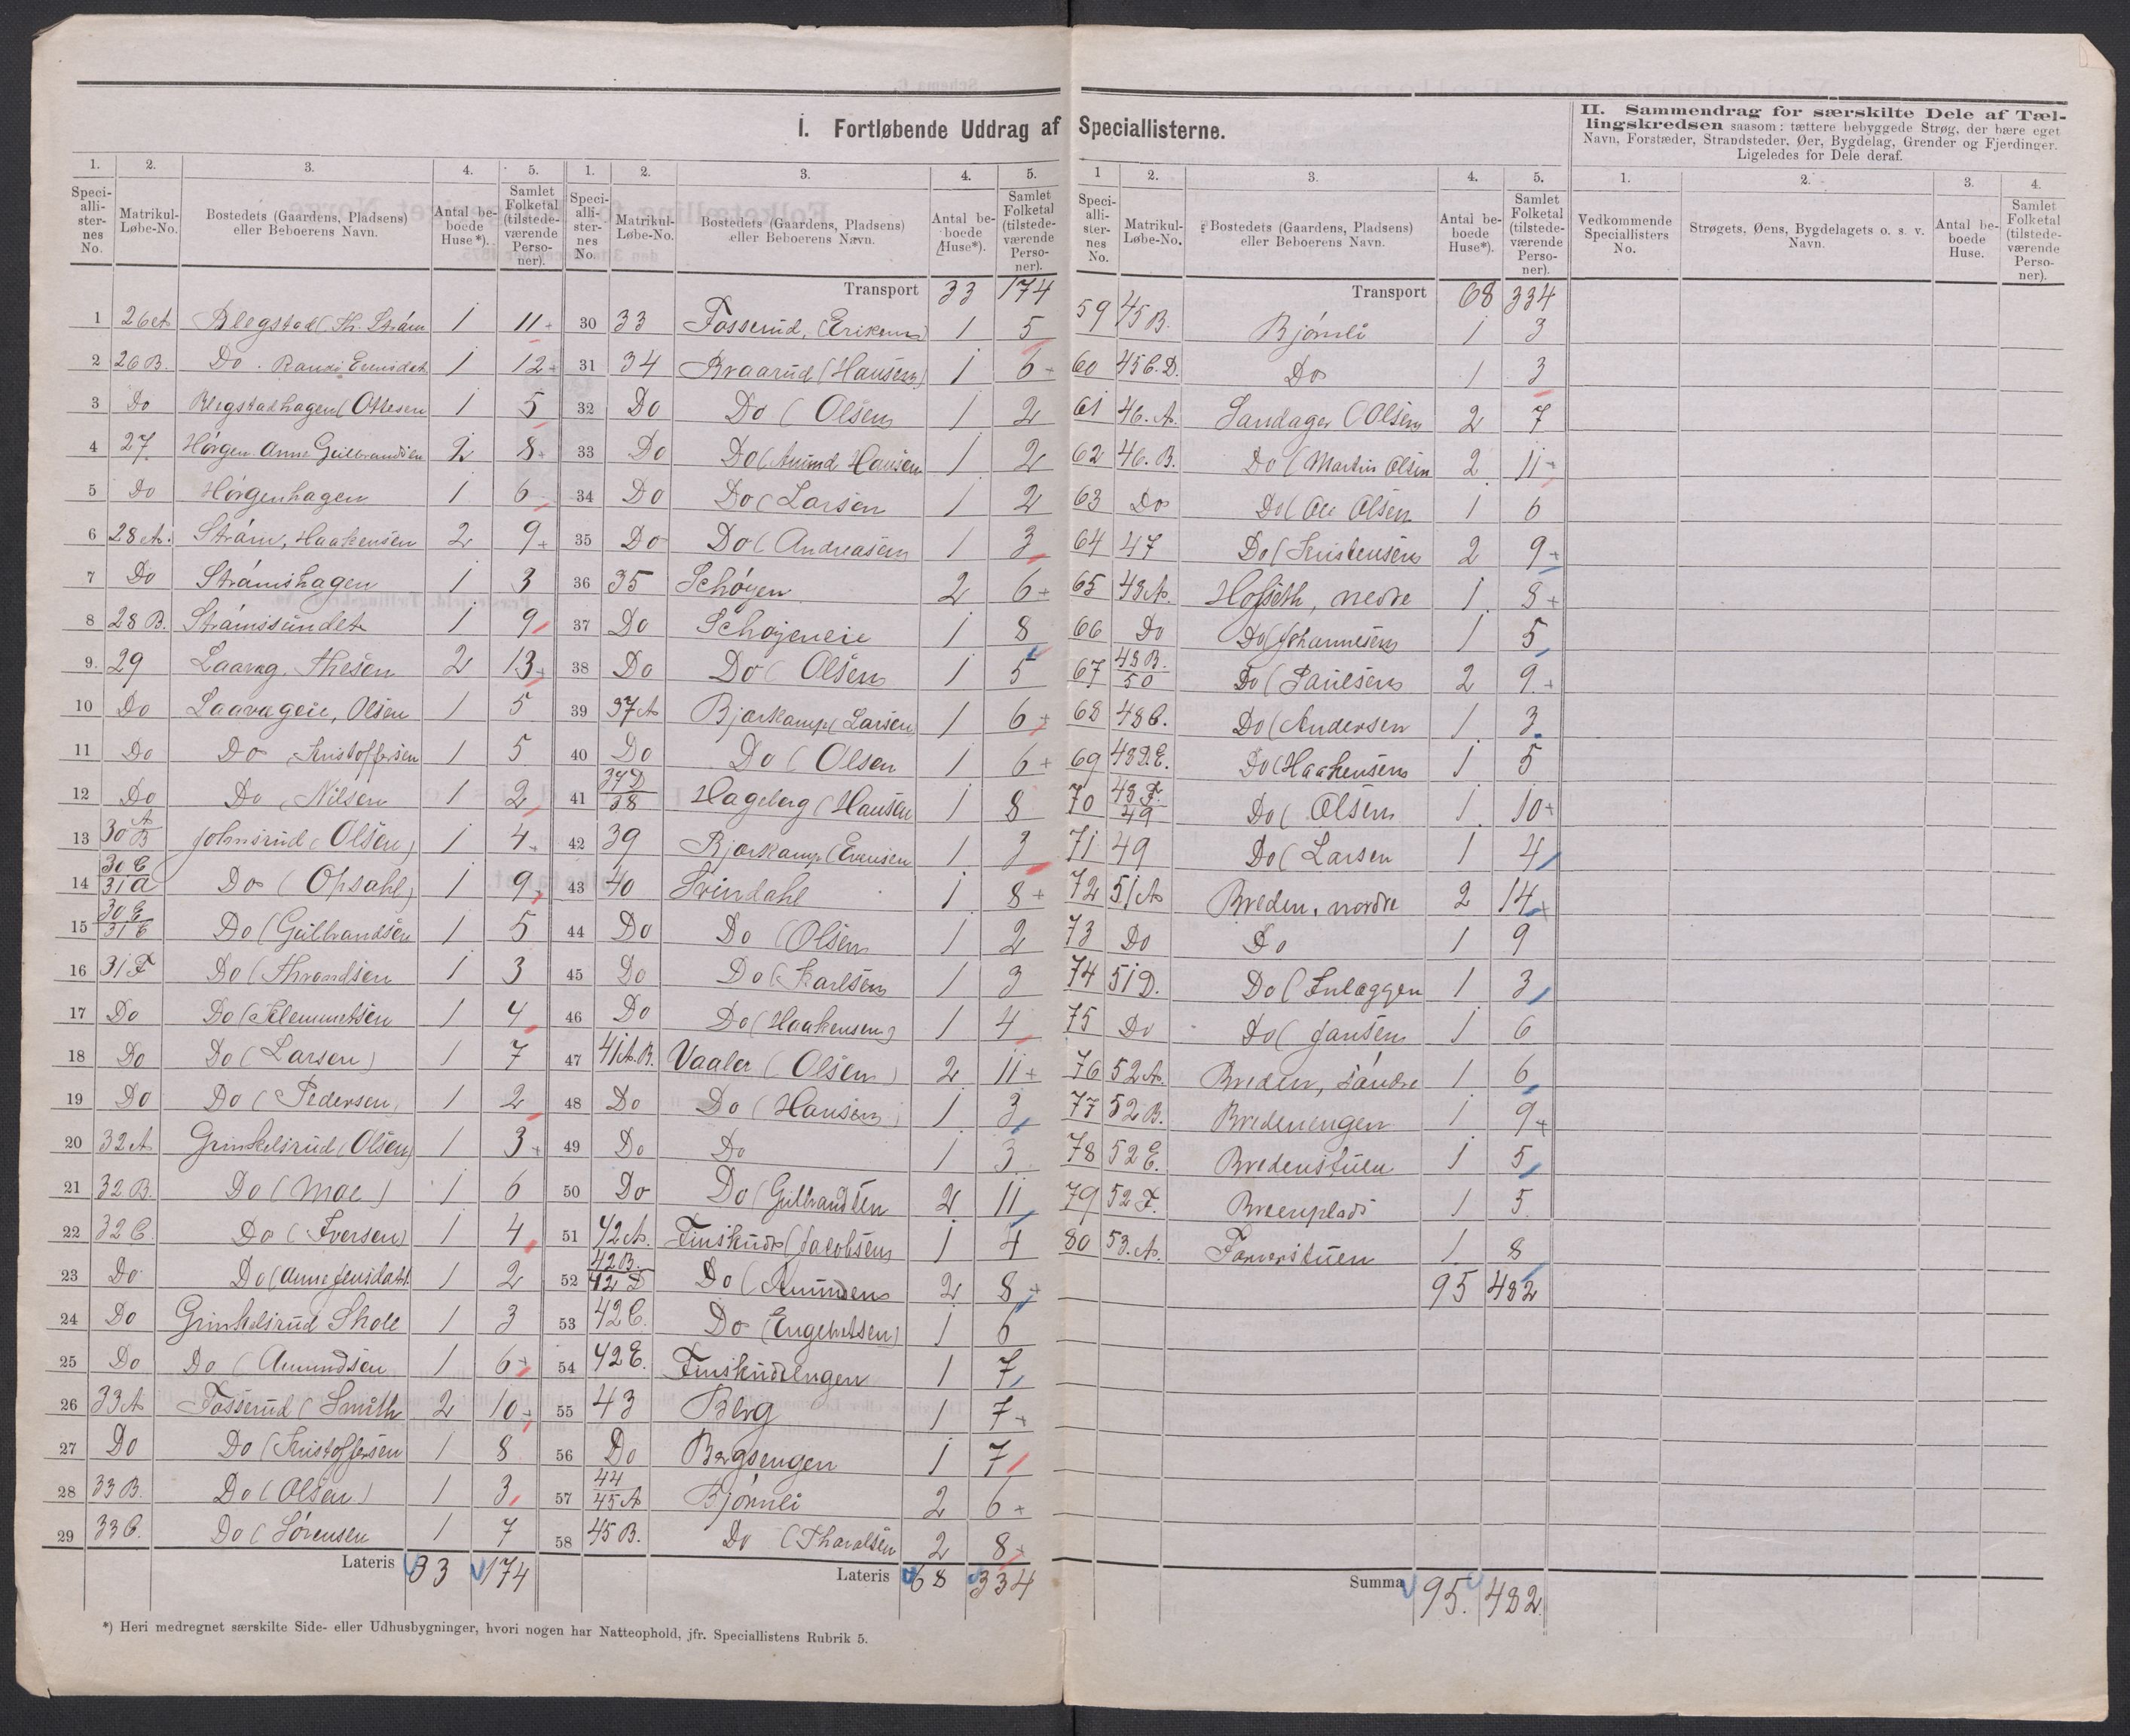 I. Fortløbende Uddrag af Speciallisterne.
II. Sammendrag for særskilte Dele af Tællingskredsen saasom: tættere bebyggede Strøg, der bære eget
Navn, Forstæder, Strandsteder, Øer, Bygdelag, Grender og Fjerdinger.
Ligeledes for Dele deraf.
1. 2. 3. 4. 5.
Speciallisternes No. Matrikul-Løbe-No. Bostedets (Gaardens, Pladsens) eller Beboerens Navn. Antal beboede Huse*). Samlet Folketal (tilstedeværende Personer).
1 26A Blegstad (Th. Strøm 1 11
2 26B. Do. Randi Evensdat 1 12
3 Do Blegstadhagen (Ottesen 1 5
4 27. Hørgen Anne Gulbrandsen 2 8
5 Do Hørgenhagen 1 6
6 28A. Strøm, Haakensen 2 9
7 Do Strømshagen 1 3
8 28B. Strømssundet 1 9
9. 29 Laavag. Thesen 2 13
10 Do Laavageie, Olsen 1 5
11 Do Do Kristoffersen 1 5
12 Do Do (Nilsen 1 2
13 30 A B Johnsrud (Olsen) 1 4
14 30C 31a Do (Opsahl) 1 9
15 30E 31E Do (Gulbrandsen 1 5
16 31F Do (Thrandsen 1 3
17 Do Do (Klemmetsen 1 4
18 Do Do (Larsen) 1 7
19 Do Do (Pedersen) 1 2
20 32A Grinkelsrud (Olsen) 1 3
21 32B. Do (Moe) 1 6
22 32C. Do (Iversen) 1 4
23 Do Do (Anne Jensdatt. 1 2
24 Do Grinkelsrud Skole 1 3
25 Do Do (Amundsen 1 6
26 33A Fosserud (Smith 2 10
27 Do Do (Kristoffersen 1 8
28 33B. Do (Olsen) 1 3
29 33C. Do (Sørensen 1 7
Lateris 33 174
1. 2. 3. 4. 5.
Speciallisternes No. Matrikul-Løbe-No. Bostedets (Gaardens, Pladsens) eller Beboerens Navn. Antal beboede Huse*). Samlet Folketal (tilstedeværende Personer).
Transport 33 174
30 33 Fosserud, (Eriksen) 1 5
31 34 Braarud (Hansen) 1 6
32 Do Do (Olsen 1 2
33 Do Do (Amund Hansen 1 2
34 Do Do (Larsen 1 2
35 Do Do (Andreasen 1 3
36 35 Schøyen 2 6
37 Do Schøjeneie 1 8
38 Do Do (Olsen 1 5
39 37A Bjørkamp (Larsen 1 6
40 Do Do (Olsen 1 6
41 37D 38 Hageberg (Hansen 1 8
42 39 Bjørkamp (Evensen 1 3
43 40 Svindahl 1 8
44 Do Do (Olsen 1 2
45 Do Do (Karlsen 1 3
46 Do Do (Haakensen) 1 4
47 41A.B. Vaaler (Olsen) 2 11
48 Do Do (Hansen) 1 3
49 Do Do 1 3
50 Do Do (Gulbrandsen 2 11
51 42A. Finskudt (Jacobsen 1 4
52 42B. 42D Do (Amundsen 2 8
53 42C. Do (Engebretsen) 1 6
54 42E. Finskudtengen 1 7
55 43 Berg 1 7
56 Do Bergsengen 1 7
57 44 45A Bjørnli 2 6
58 45B. Do (Tharalsen 2 8
Lateris 68 334
1 2. 3. 4. 5.
Speciallisternes No. Matrikul-Løbe-No. Bostedets (Gaardens, Pladsens) eller Beboerens Navn. Antal beboede Huse*). Samlet Folketal (tilstedeværende Personer).
Transport 68 334
59 45B. Bjørnli 1 3
60 45C.D. Do 1 3
61 46.A. Sandager (Olsen 2 7
62 46.B. Do (Martin Olsen 2 11
63 Do Do (Ole Olsen 1 6
64 47 Do (Kristensen 2 9
65 48A. Hofseth, nedre 1 8
66 Do Do (Johannesen 1 5
67 48B. 50 Do (Paulsen 2 9
68 48C. Do (Andersen 1 3
69 48D.E. Do (Haakensen 1 5
70 48F. 49 Do (Olsen 1 10
71 49 Do (Larsen 1 4
72 51A Breden, nordre 2 14
73 Do Do 1 9
74 51D. Do (Inlæggen 1 3
75 Do Do (Jansen 1 6
76 52A. Breden, søndre 1 6
77 52B. Bredenengen 1 9
78 52E. Bredenstuen 1 5
79 52F. Breenplads 1 5
80 53.A. Farverstuen 1 8
95 482
Summa 95. 482.
1. 2. 3. 4.
Vedkommende Speciallisters No. Strøgets, Øens, Bygdelagets o. s. v. Navn. Antal beboede Huse. Samlet Folketal (tilstedeværende Personer).
*) Heri medregnet særskilte Side- eller Udhusbygninger, hvori nogen har Natteophold, jfr. Speciallistens Rubrik 5.